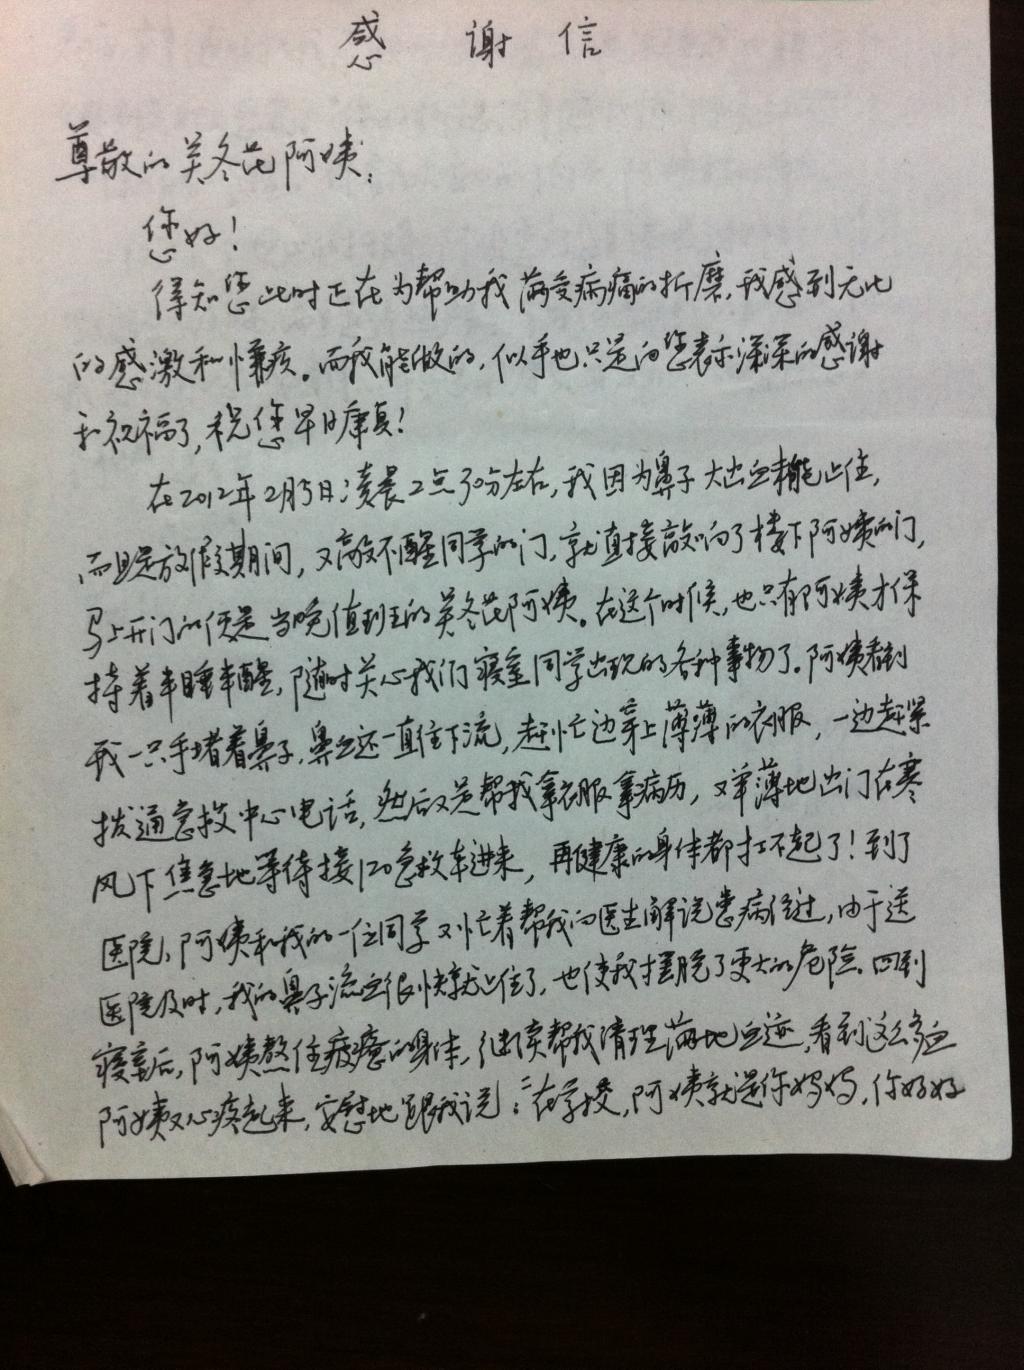 感谢信
尊敬的关冬花阿姨：
您好！
得知您此时正在为帮助我而受病痛的折磨，我感到无比
的感激和愧疚。而我能做的，似乎也只是向您表示深深的感谢
和祝福了，祝您早日康复！
在2012年2月5日凌晨2点30分左右，我因为鼻子大出血未能止住，
而且是放假期间，又敲不醒同学的门，就直接敲响了楼下阿姨的门，
马上开门的便是当晚值班的关冬花阿姨。在这个时候，也只有阿姨才保
持着半睡半醒，随时关心我们寝室同学出现的各种事物了。阿姨看到
我一只手堵着鼻子，鼻血还一直往下流，赶忙边穿上薄薄的衣服，一边赶紧
拨通急救中心电话，然后又是帮我拿衣服拿病历，又单薄地出门在寒
风下焦急地等待接120急救车进来，再健康的身体都扛不起了！到了
医院，阿姨和我的一位同学又忙着帮我向医生解说患病经过，由于送
医院及时，我的鼻子流血很快就止住了，也使我摆脱了更大的危险。回到
寝室后，阿姨熬住疲惫的身体，继续帮我清理满地血迹，看到这么多血
阿姨又心疼起来，安慰地跟我说：“在学校，阿姨就是你妈妈，你好好